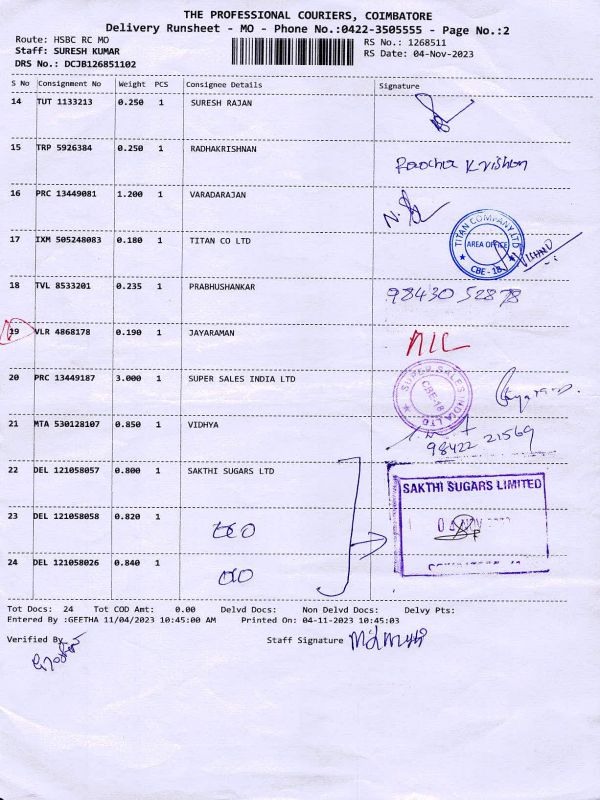 THE PROFESSIONAL COURIERS, COIMBATORE
Delivery Runsheet - MO - Phone No.:0422-3505555 - Page No.:2
Route: HSBC RC MO
RS No.: 1268511
Staff: SURESH KUMAR
RS Date: 04-Nov-2023
DRS No.: DCJB126851102
S No Consignment No Weight PCS Consignee Details Signature
14 TUT 1133213 0.250 1 SURESH RAJAN
15 TRP 5926384 0.250 1 RADHAKRISHNAN Radha Krishnan
16 PRC 13449081 1.200 1 VARADARAJAN
17 IXM 505248083 0.180 1 TITAN CO LTD TITAN COMPANY LTD AREA OFFICE CBE-18
18 TVL 8533201 0.235 1 PRABHUSHANKAR 98430 52878
19 VLR 4868178 0.190 1 JAYARAMAN NIL
20 PRC 13449187 3.000 1 SUPER SALES INDIA LTD SUPER SALES INDIA LTD CBE-18
21 MTA 530128107 0.850 1 VIDHYA 98422 21569
22 DEL 121058057 0.800 1 SAKTHI SUGARS LTD SAKTHI SUGARS LIMITED
23 DEL 121058058 0.820 1 04 NOV
24 DEL 121058026 0.840 1
Tot Docs: 24 Tot COD Amt: 0.00 Delvd Docs: Non Delvd Docs: Delvy Pts:
Entered By :GEETHA 11/04/2023 10:45:00 AM Printed On: 04-11-2023 10:45:03
Verified By
Staff Signature